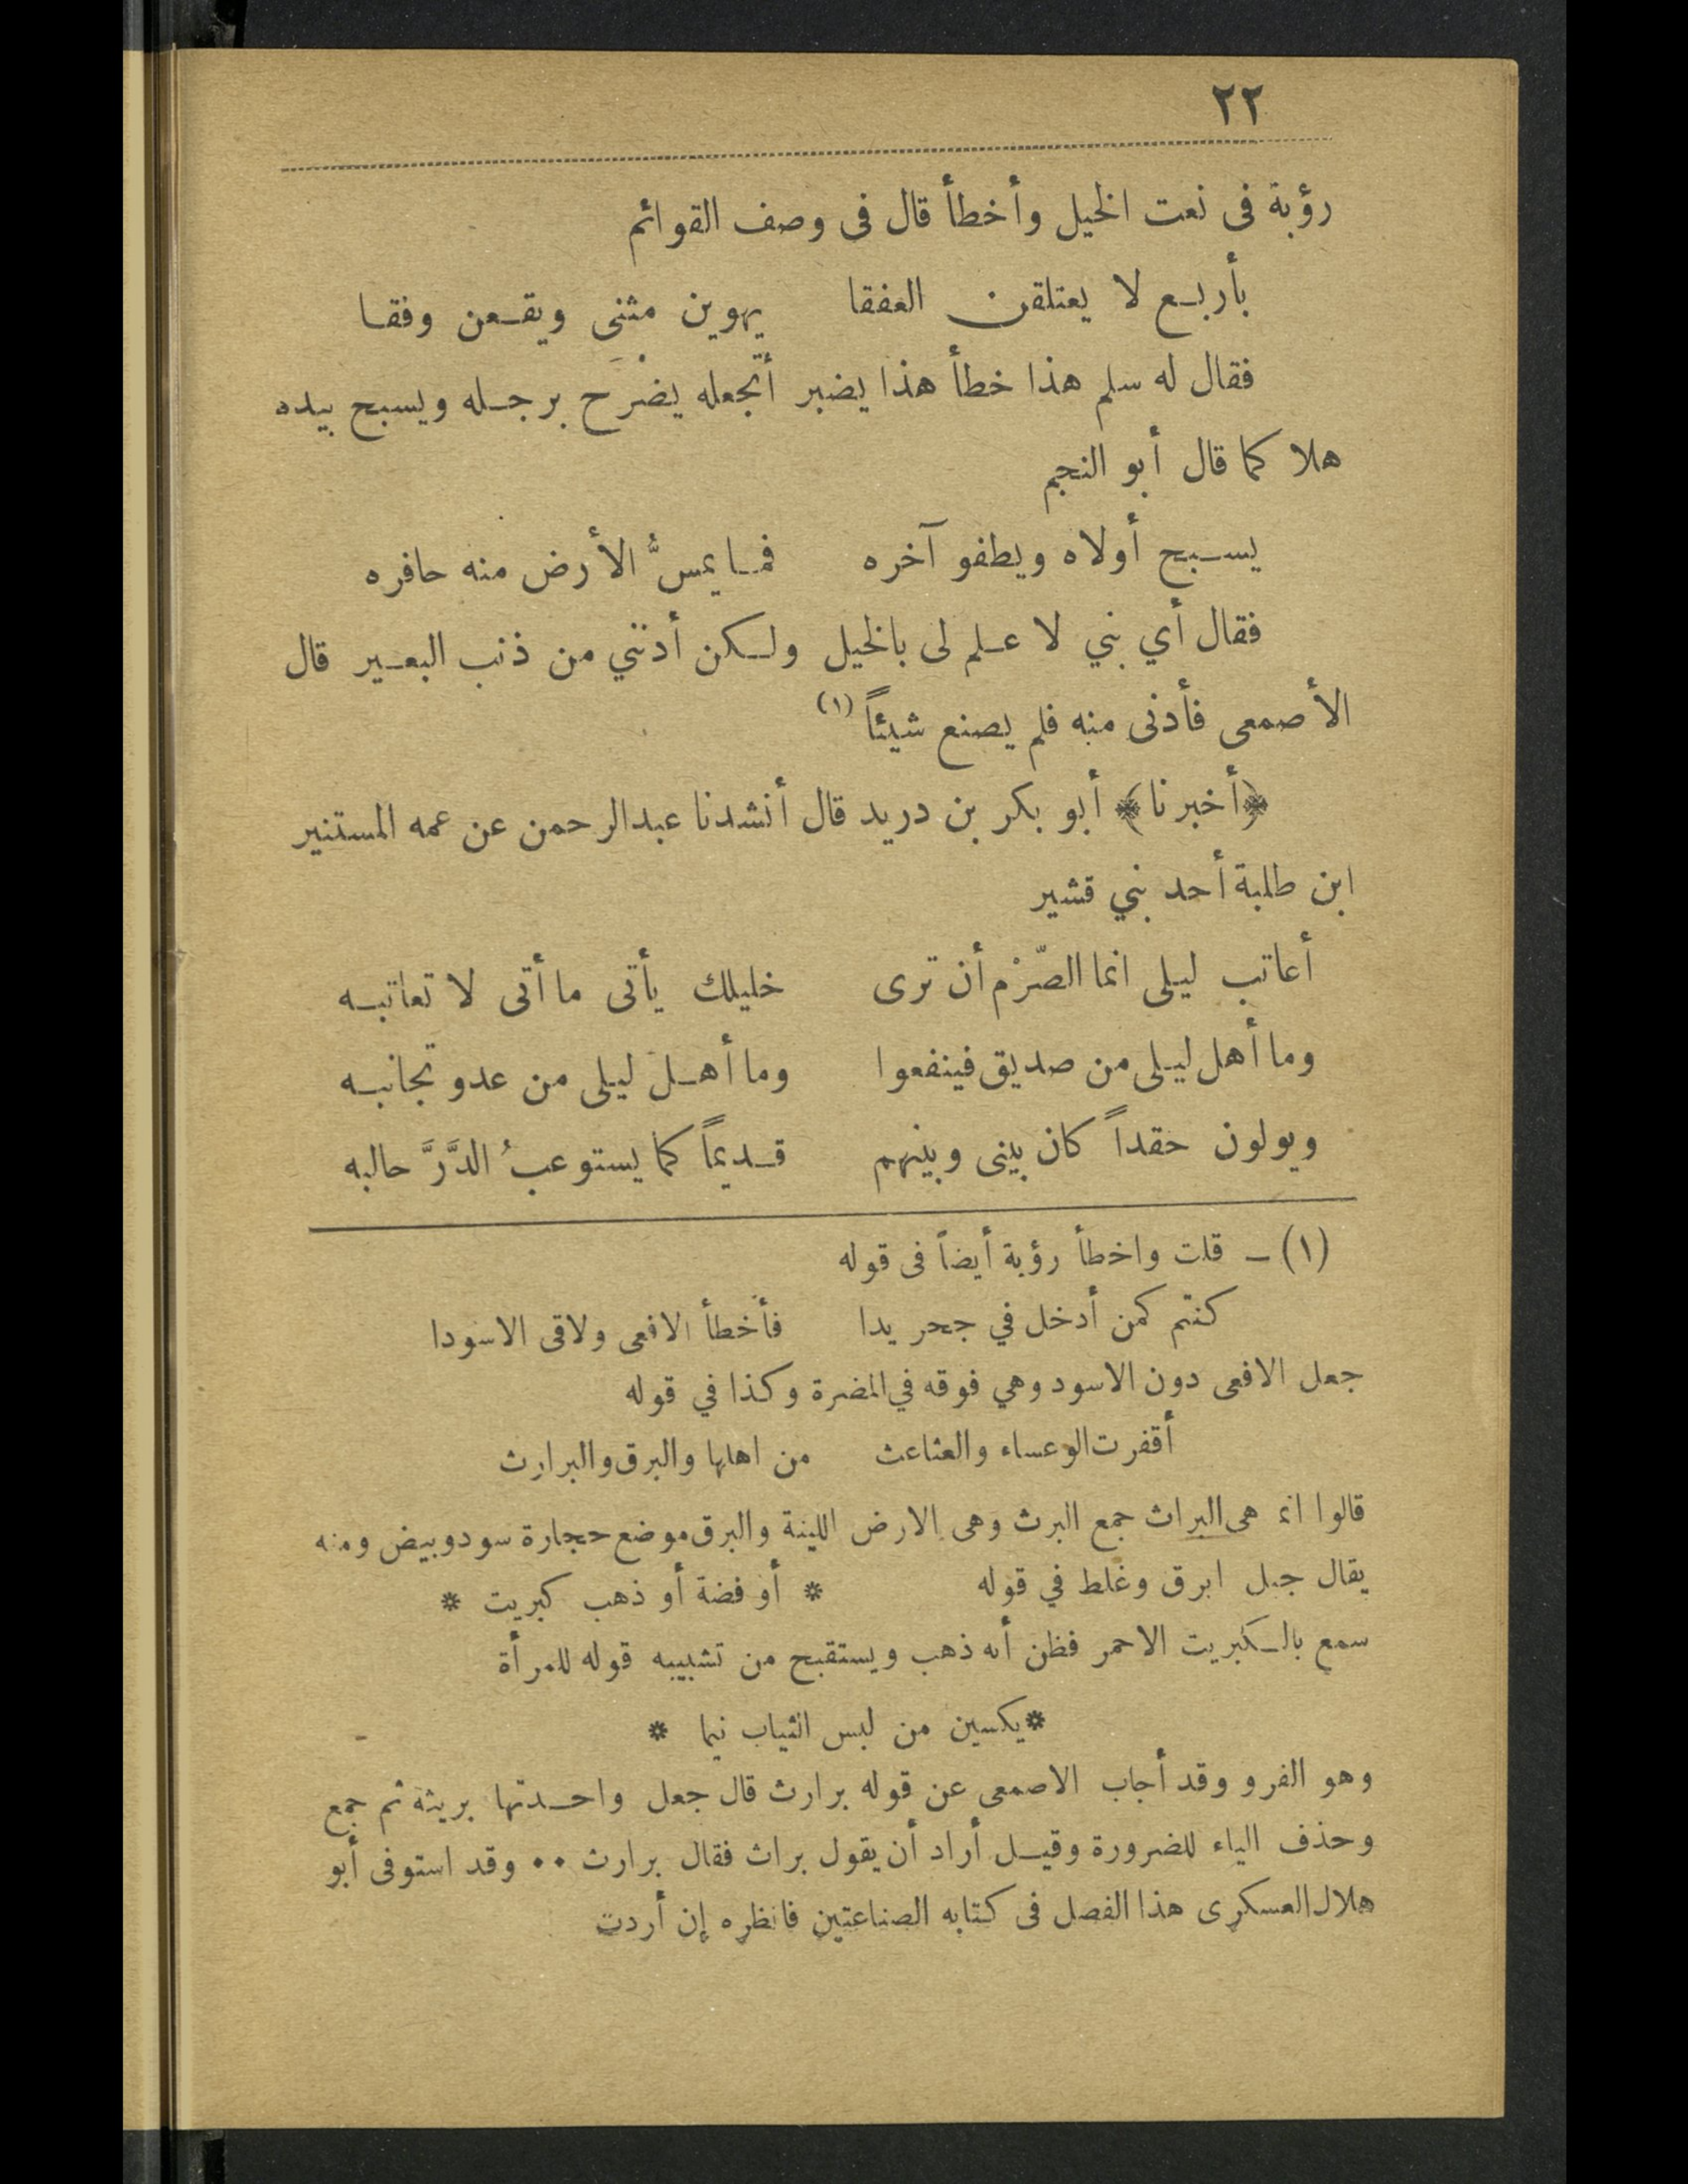 ٢٢
رؤبة فى نعت الخيل وأخطأ قال فى وصف القوائم
بأربع لا يعتلقن العفقا يهوين مثنى ويقعن وفقا
فقال له سلم هذا خطأ هذا يضبر أتجعله يضرح برجله ويسبح بيده
هلا كما قال أبو النجم
يسبح أولاه ويطفو آخره فما يمسُّ الأرض منه حافره
فقال أي بني لا علم لى بالخيل ولكن أدنني من ذنب البعير قال
الأصمعى فأدنى منه فلم يصنع شيئاً (١)
﴿أخبرنا﴾ أبو بكر بن دريد قال أنشدنا عبدالرحمن عن عمه المستنير
ابن طلبة أحد بني قشير
أعاتب ليلى انما الصّرْم أن ترى خليلك يأتى ما أتى لا تعاتبه
وما أهل ليلى من صديق فينفعوا وما أهل ليلى من عدو تجانبه
ويولون حقداً كان بينى وبينهم قديماً كما يستوعبُ الدَّرَّ حالبه
(١) ـ قلت واخطأ رؤبة أيضاً فى قوله
كنتم كمن أدخل في جحر يدا فأخطأ الافعى ولاقى الاسودا
جعل الافعى دون الاسود وهي فوقه في المضرة وكذا في قوله
أقفرت الوعساء والعثاعث من اهلها والبرق والبرارث
قالوا انما هى البراث جمع البرث وهى الارض اللينة والبرق موضع حجارة سود وبيض ومنه
يقال جبل ابرق وغلط في قوله * أو فضة أو ذهب كبريت *
سمع بالكبريت الاحمر فظن أنه ذهب ويستقبح من تشبيبه قوله للمرأة
* يكسين من لبس الثياب نيما *
وهو الفرو وقد أجاب الاصمعى عن قوله برارث قال جعل واحدتها بريثة ثم جمع
وحذف الياء للضرورة وقيل أراد أن يقول براث فقال برارث ٠٠ وقد استوفى أبو
هلال العسكرى هذا الفصل فى كتابه الصناعتين فانظره إن أردت